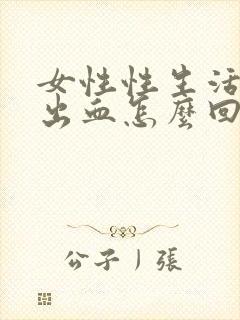 女性性生活
出血怎麼回
公子｜張